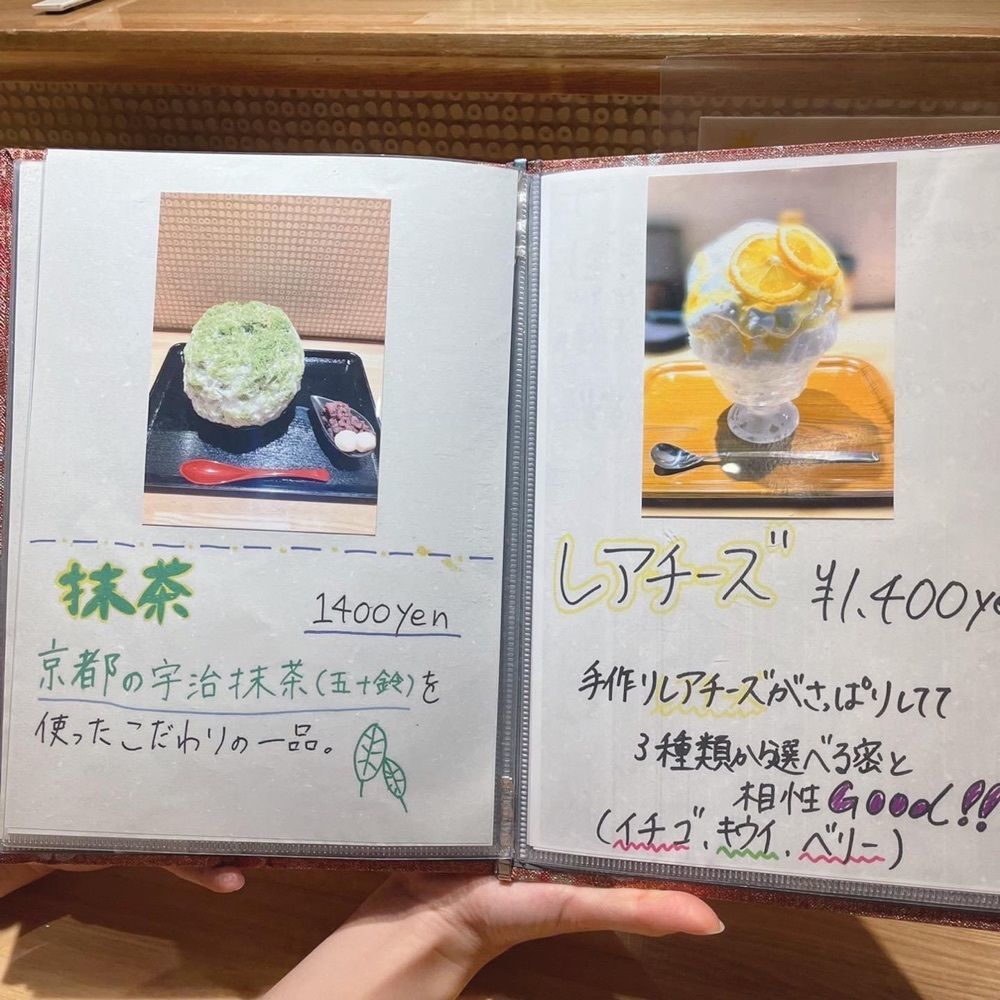 抹茶
1400yen
京都の宇治抹茶(五十鈴)を
使ったこだわりの一品。
レアチーズ
¥1,400ye
手作りレアチーズがさっぱりしてて
3種類から選べる密と
相性Goood!!
(イチゴ、キウイ、ベリー)